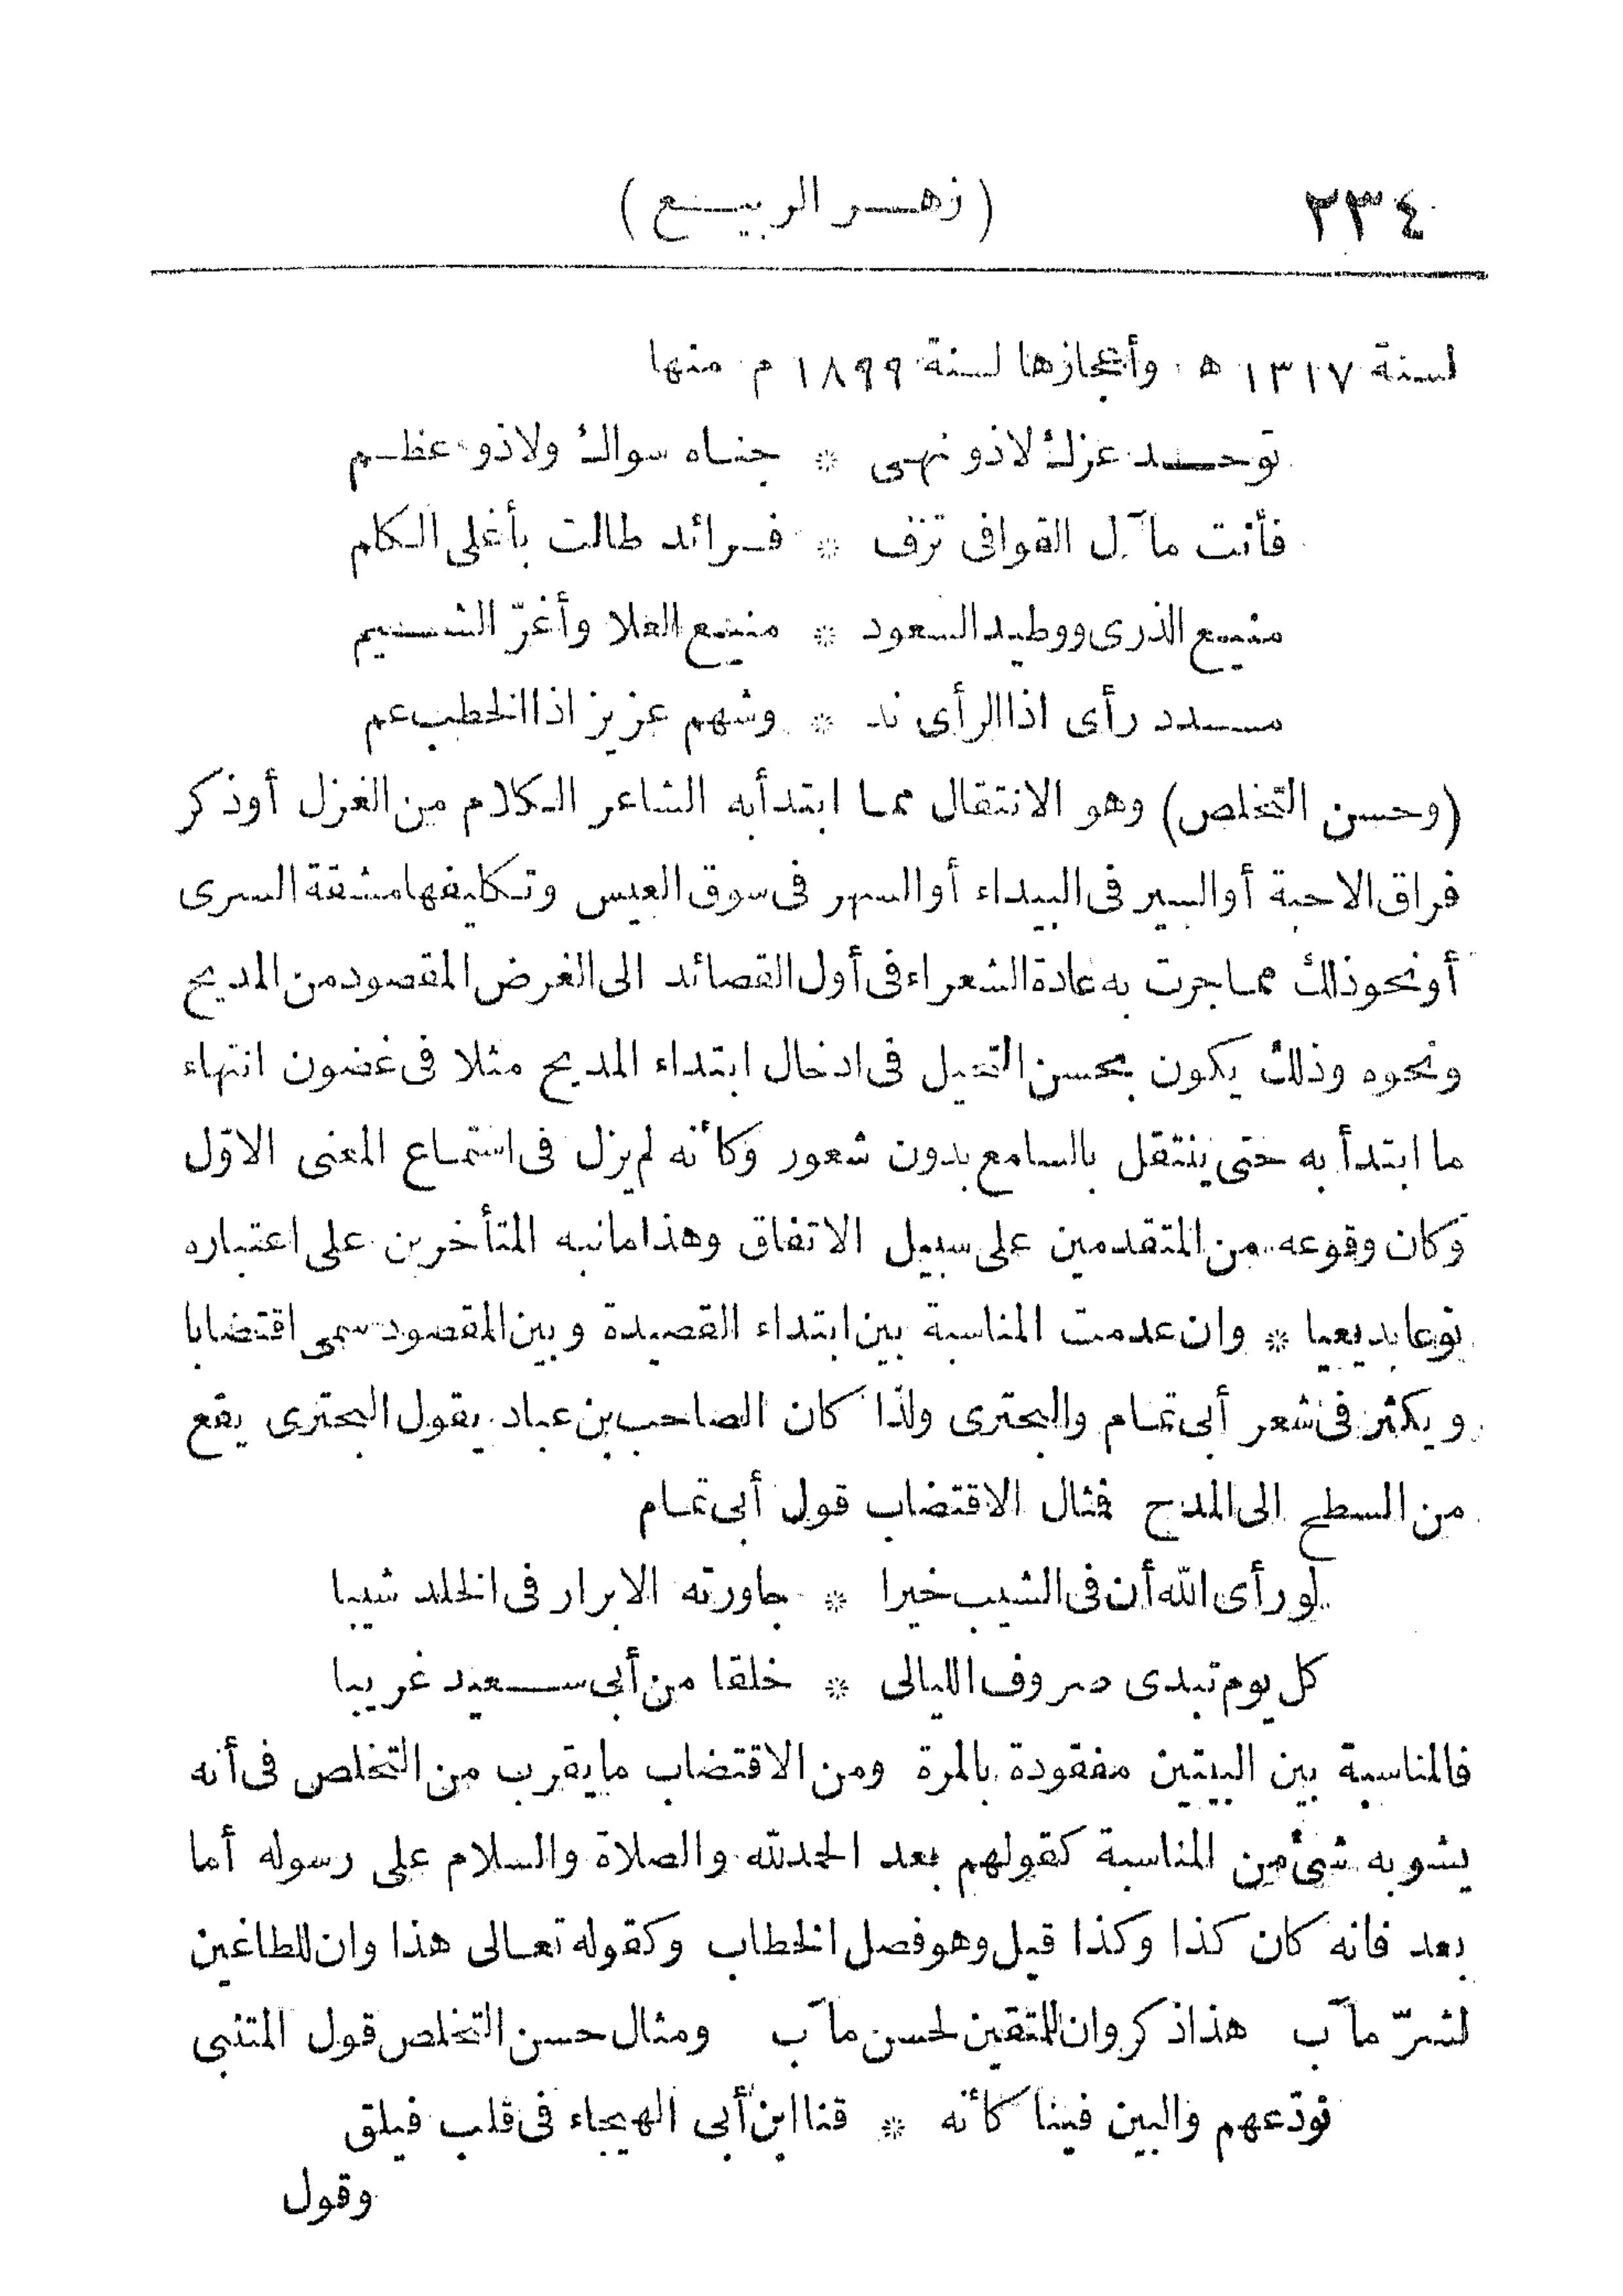 ٢٣٤ (زهر الربيع)
لسنة ١٣١٧ ه. وأعجازها لسنة ١٨٩٩ م منها
توحد عزك لاذو نهى * جناه سواك ولاذو عظم
فأنت مآل القوافى تزف * فرائد طالت بأغلى الكلم
منيع الذرى ووطيد السعود * منيع العلا وأغرّ الشيم
مسدد رأى اذا الرأى ند * وشهم عزيز اذا الخطب عم
(وحسن التخلص) وهو الانتقال مما ابتدأ به الشاعر الكلام من الغزل أوذكر
فراق الاحبة أوالسير فى البيداء أوالسهر فى سوق العيس وتكليفها مشقة السرى
أونحوذلك مما جرت به عادة الشعراء فى أول القصائد الى الغرض المقصود من المديح
ونحوه وذلك يكون بحسن التحيل فى ادخال ابتداء المديح مثلا فى غضون انتهاء
ما ابتدأ به حتى ينتقل بالسامع بدون شعور وكأنه لم يزل فى استماع المعنى الاوّل
وكان وقوعه من المتقدمين على سبيل الاتفاق وهذا مانبه المتأخرين على اعتباره
نوعا بديعيا * وان عدمت المناسبة بين ابتداء القصيدة وبين المقصود سمى اقتضابا
ويكثر فى شعر أبى تمام والبحترى ولذا كان الصاحب بن عباد يقول البحترى يقع
من السطح الى المدح فمثال الاقتضاب قول أبى تمام
لو رأى الله أن فى الشيب خيرا * جاورته الابرار فى الخلد شيبا
كل يوم تبدى صروف الليالى * خلقا من أبى سعيد غريبا
فالمناسبة بين البيتين مفقودة بالمرة ومن الاقتضاب مايقرب من التخلص فى أنه
يشوبه شئ من المناسبة كقولهم بعد الحمدلله والصلاة والسلام على رسوله أما
بعد فانه كان كذا وكذا قيل وهو فصل الخطاب وكقوله تعالى هذا وان للطاغين
لشرّ مآب هذا ذكر وان للمتقين لحسن مآب ومثال حسن التخلص قول المتنبى
نودّعهم والبين فينا كأنه * قنا ابن أبى الهيجاء فى قلب فيلق
وقول